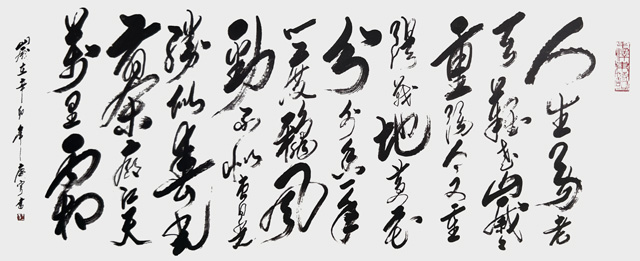 人生易老
天難老歲々
重陽今又重
陽戰地黄花
分外香一年
一度秋風
勁不似春光
勝似春光
寥廓江天
萬里霜
歲在辛卯年書